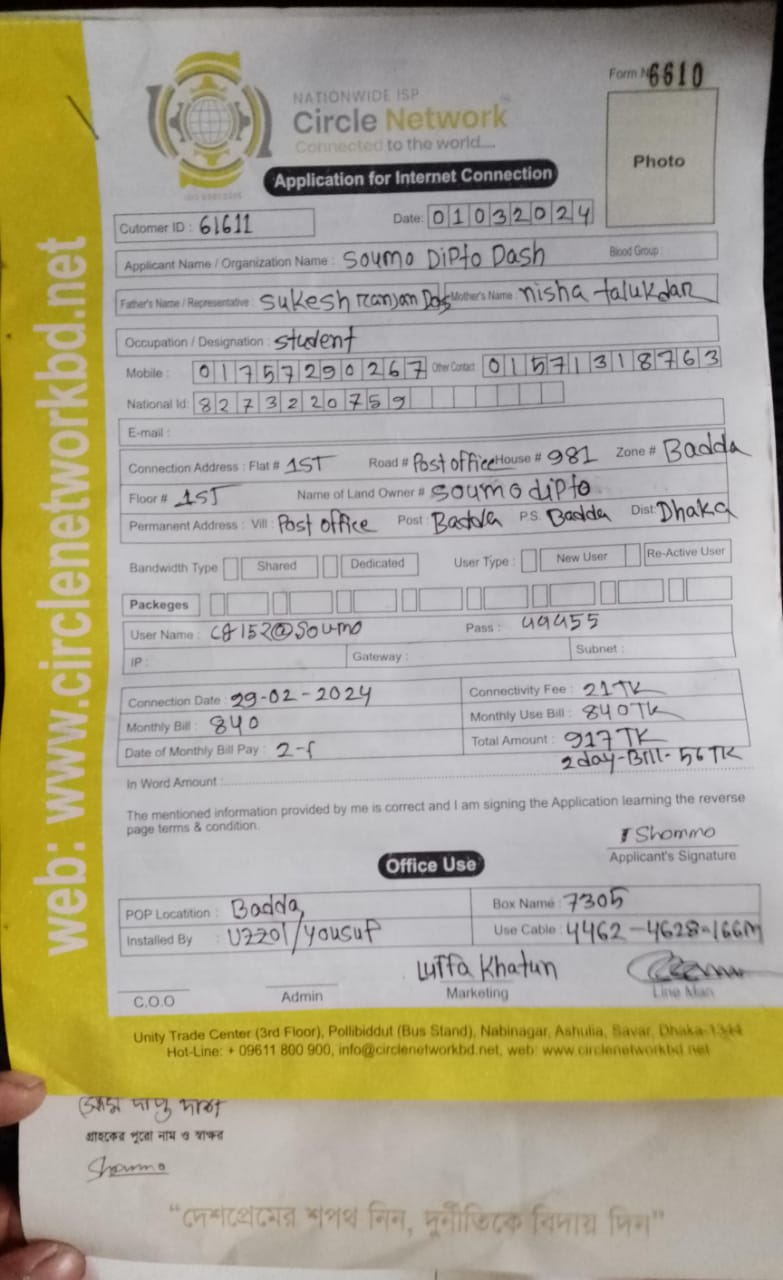 Form No 6610
NATIONWIDE ISP
Circle Network
Connected to the world....
Application for Internet Connection
Photo
Cutomer ID : 61611
Date: 01032024
Applicant Name / Organization Name : Soumo Dipto Dash Blood Group :
Father's Name / Representative : Sukesh ranjan Das Mother's Name : nisha talukdar
Occupation / Designation : student
Mobile : 01757290267 Other Contact: 01571318763
National Id: 8273220759
E-mail :
Connection Address : Flat # 1ST Road # Post office House # 981 Zone # Badda
Floor # 1ST Name of Land Owner # Soumo dipto
Permanent Address : Vill : Post office Post : Badda P.S. Badda Dist: Dhaka
Bandwidth Type Shared Dedicated User Type : New User Re-Active User
Packeges
User Name : C8152@Soumo Pass : 49455
IP : Gateway : Subnet :
Connection Date : 29-02-2024 Connectivity Fee : 21TK
Monthly Bill : 840 Monthly Use Bill : 840TK
Date of Monthly Bill Pay : Total Amount : 917TK
2day-Bill-56TK
In Word Amount :
The mentioned information provided by me is correct and I am signing the Application learning the reverse
page terms & condition.
Shommo
Applicant's Signature
Office Use
POP Locatition : Badda Box Name : 7305
Installed By : Uzzol/Yousuf Use Cable : 4462-4628=166M
Lutfa Khatun
C.O.O Admin Marketing Line Man
Unity Trade Center (3rd Floor), Pollibiddut (Bus Stand), Nabinagar, Ashulia, Savar, Dhaka-1344
Hot-Line: + 09611 800 900, info@circlenetworkbd.net, web: www.circlenetworkbd.net
web: www.circlenetworkbd.net
গ্রাহকের পুরো নাম ও স্বাক্ষর
Shommo
“দেশপ্রেমের শপথ নিন, দুর্নীতিকে বিদায় দিন”